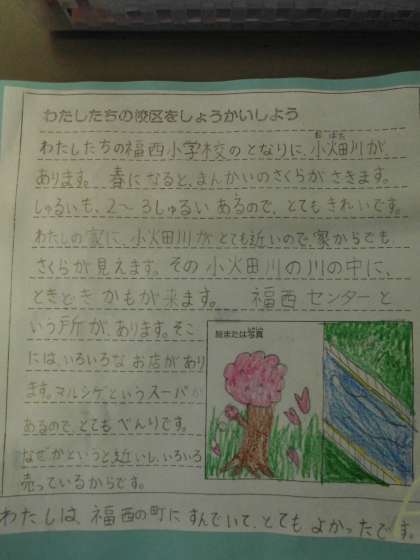 わたしたちの校区をしょうかいしよう
わたしたちの福西小学校のとなりに、小畑川が
おばた
あります。春になると、まんかいのさくらがさきます。
しゅるいも、2〜3しゅるいあるので、とてもきれいです。
わたしの家に、小畑川がとても近いので、家からでも
さくらが見えます。その小畑川の川の中に、
ときどきかもが来ます。福西センターと
いう所が、あります。そこ
には、いろいろなお店があり
ます。マルシゲというスーパが
あるので、とてもべんりです。
なぜかというと近いし、いろいろ
売っているからです。
絵または写真
わたしは、福西の町にすんでいて、とてもよかったです。